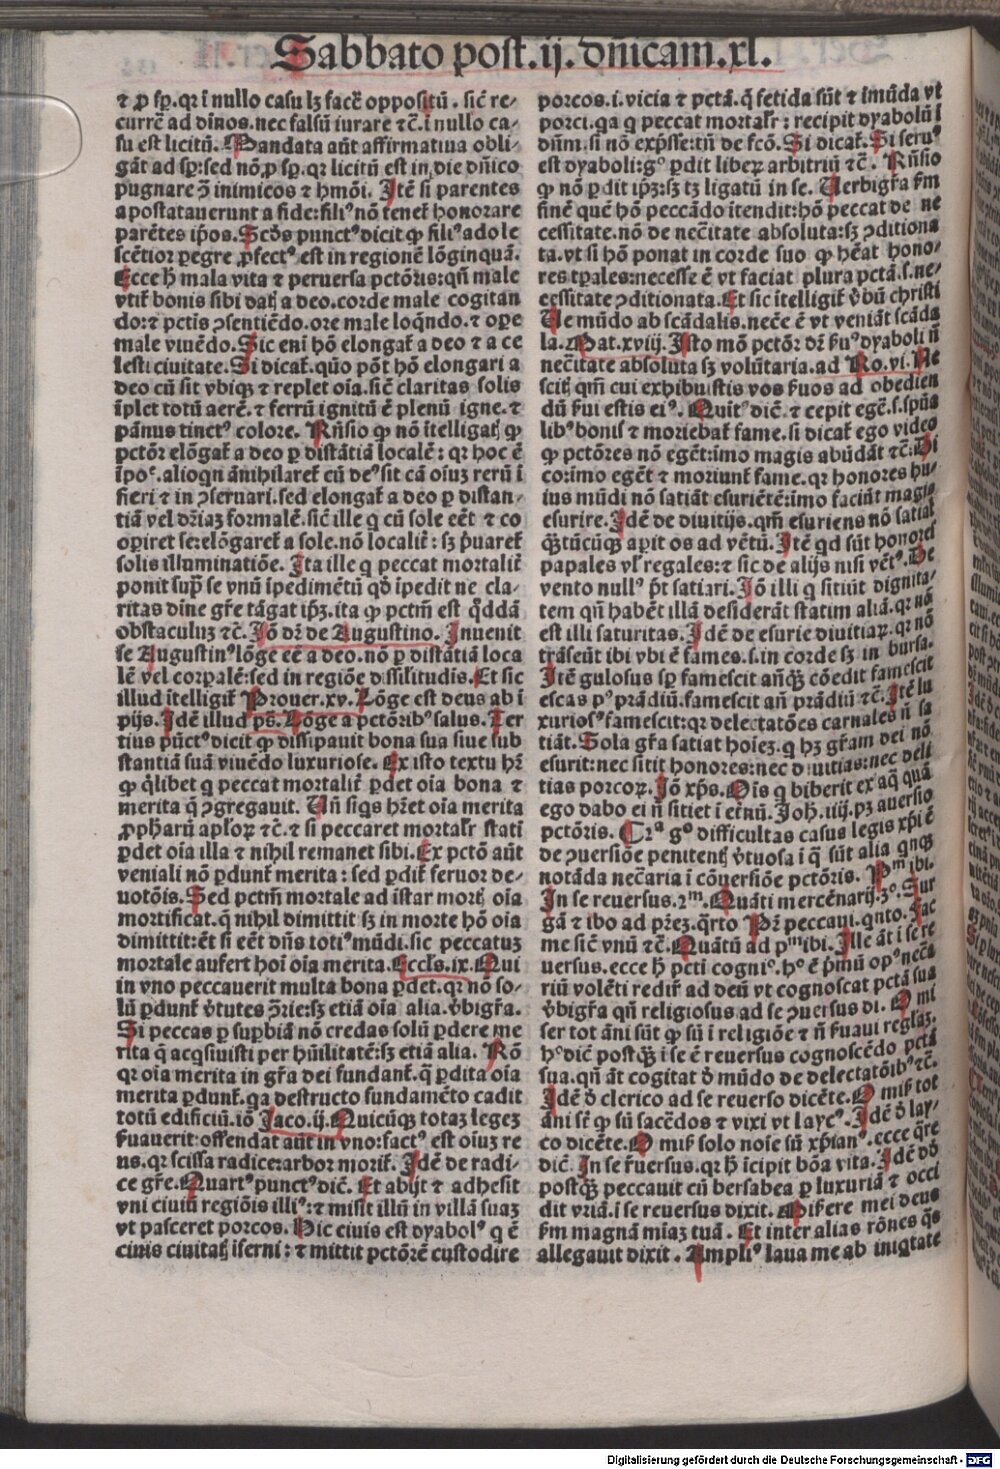 Sabbato post.ij. dn̄icam.xl.
⁊ ꝓ sp̄. qꝛ ī nullo casu lꝫ facē oppositū. sic̄ re⸗
currē ad diīnos. nec falsū iurare ⁊c̄. ī nullo ca⸗
su est licitū. Mandata aūt affirmatiua obli⸗
gāt ad sp̄: sed nō ꝓ sp̄. qꝛ licitū est in die dn̄ico
pugnare ꝯ̄ inimicos ⁊ hmōi. Itē si parentes
apostatauerunt a fide: fili⁹ nō tenet̄ honorare
parētes ip̄os. Scd̓s punct⁹ dicit ꝙ fili⁹ adole
scētior ꝑegre ꝓfect⁹ est in regionē lōginquā.
Ecce h̄ mala vita ⁊ peruersa pctōris: qn̄ male
vtit̄ bonis sibi datꝭ a deo. corde male cogitan
do: ⁊ pctis ꝯsentiēdo. ore male loq̄ndo. ⁊ oꝑe
male viuēdo. Sic eni hō elongat̄ a deo ⁊ a ce
lesti ciuitate. Si dicat̄. quō pōt hō elongari a
deo cū sit vbiqꝫ ⁊ replet oīa. sic̄ claritas solis
īplet totū aerē. ⁊ ferrū ignitū ē plenū igne. ⁊
pānus tinct⁹ colore. Rn̄sio ꝙ nō ītelligatꝭ ꝙ
pctōr elōgat̄ a deo ꝑ distātiā localē: qꝛ hoc ē
īpo⁰. alioqn ānihilaret̄ cū de⁹ sit cā oīuꝫ rerū ī
fieri ⁊ in ꝯseruari. sed elongat̄ a deo ꝑ distan⸗
tiā vel dr̄iaꝫ formalē. sic̄ ille q cū sole eēt ⁊ co
oꝑiret se: elōgaret̄ a sole. nō localit̄: sꝫ p̄uaret̄
solis illuminatiōe. Ita ille q peccat mortalit̄
ponit supͣ se vnū īpedimētū qd̓ īpedit ne cla⸗
ritas diīne gr̄e tāgat ip̄ꝫ. ita ꝙ pctm̄ est q̄ddā
obstaculuꝫ ⁊c̄. Iō dꝛ̄ de Augustino. Inuenit
se Augustin⁹ lōge eē a deo. nō ꝑ distātiā loca
lē vel corꝑalē: sed in regiōe dissilitudis. Et sic
illud ītelligit̄ Prouer.xv. Lōge est deus ab ī
pijs. Idē illud ps̄. Lōge a pctōrib⁹ salus. Ter
tius pūct⁹ dicit ꝙ dissipauit bona sua siue sub
stantiā suā viuēdo luxuriose. Ex isto textu hr̄
ꝙ q̇libet q peccat mortalit̄ ꝑdet oīa bona ⁊
merita q̄ ꝯgregauit. Un̄ siqs hr̄et oīa merita
ꝓph̄arū apl̄oꝝ ⁊c̄. ⁊ si peccaret mortalr̄ statī
ꝑdet oīa illa ⁊ nihil remanet sibi. Ex pctō aūt
veniali nō ꝑdunt̄ merita: sed ꝑdit̄ feruor de⸗
uotōis. Sed pctm̄ mortale ad istar mortꝭ oīa
mortificat. q̄ nihil dimittit sꝫ in morte hō oīa
dimittit: ēt si eēt dn̄s toti⁹ mūdi. sic peccatuꝫ
mortale aufert hoī oīa merita. Eccls̄.ix. Qui
in vno peccauerit multa bona ꝑdet. qꝛ nō so⸗
lū ꝑdunt̄ v̓tutes ꝯ̄rie: sꝫ etiā oīa alia. v̓bigr̄a.
Si peccas ꝑ supbiā nō credas solū ꝑdere me
rita q̄ acq̇siuisti per hūilitatē: sꝫ etiā alia. Rō
qꝛ oīa merita in gr̄a dei fundant̄. q̄ ꝑdita oīa
merita ꝑdunt̄. qa destructo fundamēto cadit
totū edificiū. iō Jaco.ij. Quicūqꝫ totaꝫ legeꝫ
s̄uauerit: offendat aūt in vno: fact⁹ est oīuꝫ re
us. qꝛ scissa radice: arbor morit̄. Idē de radi⸗
ce gr̄e. Quart⁹ punct⁹ dic̄. Et abijt ⁊ adhesit
vni ciuiū regiōis illi⁹: ⁊ misit illū in villā suaꝫ
vt pasceret porcos. Hic ciuis est dyabol⁹ q ē
ciuis ciuitatꝭ iferni: ⁊ mittit pctōrē custodire
porcos. i. vicia ⁊ pctā. q̄ fetida sūt ⁊ imūda vt
porci. qa q peccat mortalr̄: recipit dyabolū ī
dn̄m. si nō exp̄sse: tn̄ de fc̄o. Si dicat̄. Si seru⁹
est dyaboli: g⁰ ꝑdit liberꝫ arbitriū ⁊c̄. Rn̄sio
ꝙ nō ꝑdit ip̄ꝫ: sꝫ tꝫ ligatū in se. Uerbigr̄a s̄m
finē quē hō peccādo ītendit: hō peccat de ne
cessitate. nō de nec̄itate absoluta: sꝫ ꝯditiona
ta. vt si hō ponat in corde suo ꝙ hēat hono⸗
res tꝑales: necesse ē vt faciat plura pctā. s. ne⸗
cessitate ꝯditionata. Et sic ītelligit̄ v̓bū christi
Ue mūdo ab scādalis. necē ē vt veniāt scāda
la. Mat.xviij. Isto mō pctōꝛ dꝛ̄ s̄u⁹ dyaboli n̄
nec̄itate absoluta sꝫ volūtaria. ad Ro.vi. Ne
scitꝭ qm̄ cui exhibuistis vos s̄uos ad obedien
dū s̄ui estis ei⁹. Quit⁹ dic̄. ⁊ cepit egē. s. spūa
lib⁹ bonis ⁊ moriebat̄ fame. si dicat̄ ego video
ꝙ pctōres nō egēt: imo magis abūdāt ⁊c̄. Di
co: imo egēt ⁊ moriunt̄ fame. qꝛ honores hu⸗
ius mūdi nō satiāt esuriētē: imo faciāt magis
esurire. Idē de diuitijs. qm̄ esuriens nō satiat̄
q̄ꝫtūcūqꝫ aꝑit os ad vētū. Itē qd sūt honores
papales vl̓ regales: ⁊ sic de alijs nisi vēt⁹. De
vento null⁹ pt̄ satiari. Iō illi q sitiūt dignita⸗
tem qn̄ habēt illā desiderāt statim aliā. qꝛ nō
est illi saturitas. Idē de esurie diuitiaꝝ. qꝛ nō
trāseūt ibi vbi ē fames. s. in corde sꝫ in bursa.
Itē gulosus sp̄ famescit añq̄ꝫ cōedit famescit
escas p⁹ prādiū. famescit añ prādiū ⁊c̄. Itē lu
xurios⁹ famescit: qꝛ delectatōes carnales n̄ sa
tiāt. Sola gr̄a satiat hoīeꝫ. q hꝫ gr̄am dei nō
esurit: nec sitit honores: nec diuitias: nec deli
tias porcoꝝ. Iō xp̄s. Oīs q biberit ex aq̄ quā
ego dabo ei n̄ sitiet ī et̄nū. Joh.iiij. pꝫ auersio
pctōris. ¶ Cͣ g⁰ difficultas casus legis xp̄i ē
de ꝯuersiōe penitentꝭ v̓tuosa ī q̄ sūt alia qnqꝫ
notāda nec̄aria ī cōuersiōe pctōris. Pᵐ ibi.
In se reuersus. 2ᵐ. Quāti mercēnarij. 3⁰. Sur
gā ⁊ ibo ad pr̄eꝫ. q̄rto Pr̄ peccaui. qnto. Fac
me sic̄ vnū ⁊c̄. Quātū ad pᵐ ibi. Ille āt ī se re
uersus. ecce h̄ pcti cogni⁰. h⁰ ē p̄mū op⁹ necā
riū volēti redir̄ ad deū vt cognoscat pctā sua
v̓bigr̄a qn̄ religiosus ad se ꝯuersus di. O mi
ser tot āni sūt ꝙ sū ī religiōe ⁊ n̄ s̄uaui reglaꝫ.
h⁰ dic̄ postq̄ꝫ ī se ē reuersus cognoscēdo pctā
sua. qn̄ āt cogitat d̓ mūdo de delectatōib⁹ ⁊c̄.
Idē d̓ clerico ad se reuerso dicēte. O misꝭ tot
āni st̄ ꝙ sū sacēdos ⁊ vixi vt layc⁹. Idē d̓ lay⸗
co dicēte. O misꝭ solo noīe sū xp̄ian⁹. ecce q̄re
dic̄. In se r̄uersus. qꝛ h̄ īcipit bōa vita. Idē dō
postq̄ꝫ peccauit cū bersabea ꝑ luxuriā ⁊ occi
dit vriā. ī se reuersus dixit. Misere mei deus
s̄m magnā mīaꝫ tuā. Et inter alias rōnes q̄s
allegauit dixit. Ampli⁹ laua me ab iniqtate
Digitalisierung gefördert durch die Deutsche Forschungsgemeinschaft - DFG